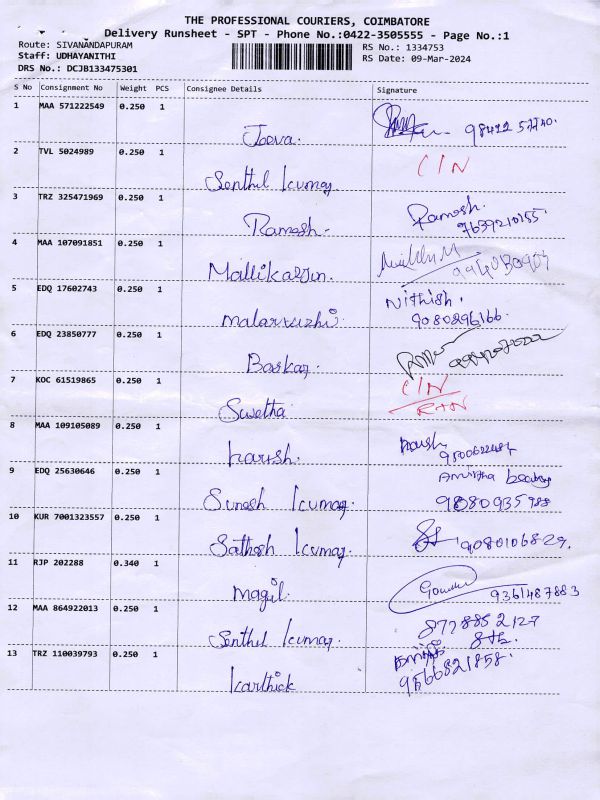 THE PROFESSIONAL COURIERS, COIMBATORE
Delivery Runsheet - SPT - Phone No.:0422-3505555 - Page No.:1
Route: SIVANANDAPURAM
Staff: UDHAYANITHI
DRS No.: DCJB133475301
RS No.: 1334753
RS Date: 09-Mar-2024
S No Consignment No Weight PCS Consignee Details Signature
1 MAA 571222549 0.250 1
Jeeva.
2 TVL 5024989 0.250 1 C/N
Senthil Kumar
3 TRZ 325471969 0.250 1 Ramesh.
Ramesh. 7639210155
4 MAA 107091851 0.250 1
Mallikarjun.
5 EDQ 17602743 0.250 1 Nithish.
Malarvizhi 9080296166.
6 EDQ 23850777 0.250 1
Baskar
7 KOC 61519865 0.250 1 C/N
Swetha RTN
8 MAA 109105089 0.250 1
Harish.
9 EDQ 25630646 0.250 1
Suresh Kumar
10 KUR 7001323557 0.250 1
Sathosh Kumar 9080106829.
11 RJP 202288 0.340 1
Magil. 9361487883
12 MAA 864922013 0.250 1 8778852127
Senthil Kumar.
13 TRZ 110039793 0.250 1
Karthick 9566821858.